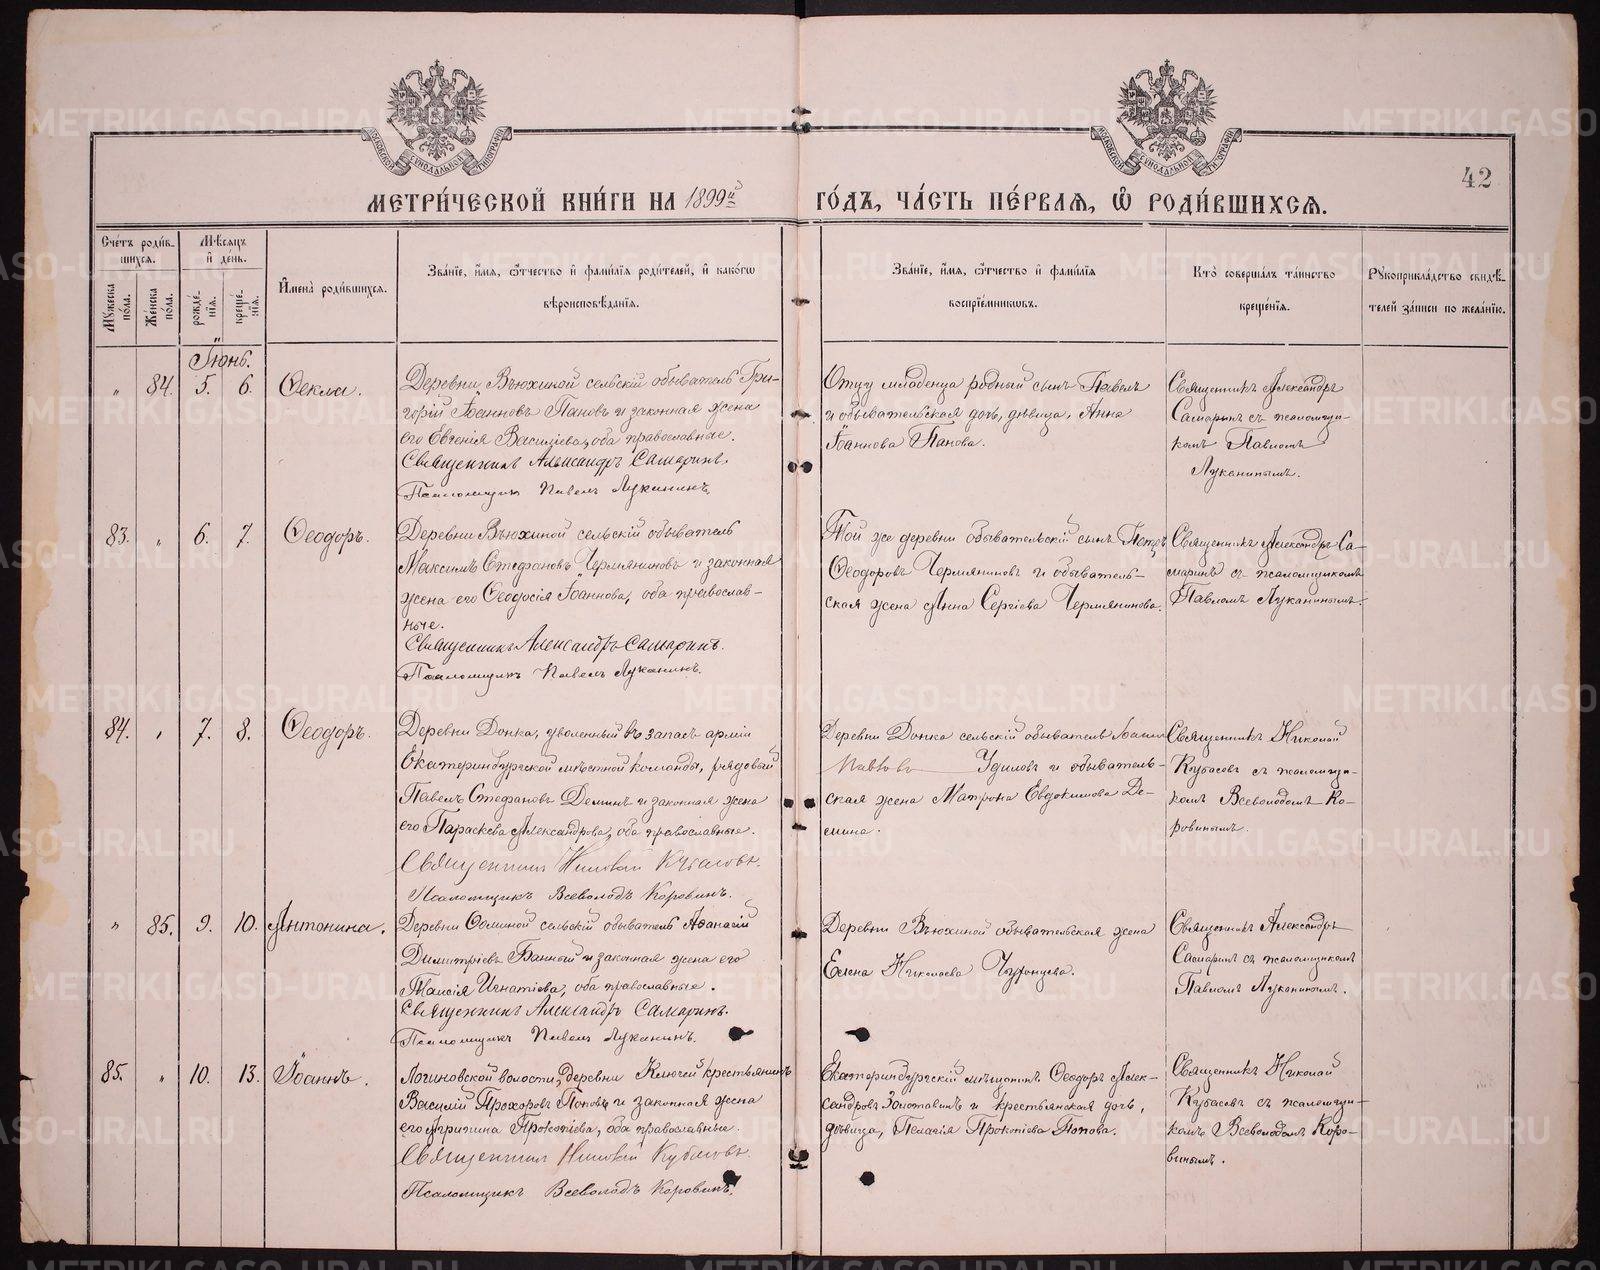 МОСКОВСКОЙ СѴНОДАЛЬНОЙ ТИПОГРАФІИ
МОСКОВСКОЙ СѴНОДАЛЬНОЙ ТИПОГРАФІИ
42
МЕТРИ́ЧЕСКОЙ КНИ́ГИ НА 1899й ГО́ДЪ, ЧА́СТЬ ПЕ́РВАѦ, Ѡ҆ РОДИ́ВШИХСѦ.
Сче́тъ роди́в-
шихсѧ.
Мѣ́сѧцъ
и҆ де́нь.
Мꙋ́жеска
по́ла.
Же́нска
по́ла.
рожде́-
нїѧ.
креще́-
нїѧ.
И҆мена̀ роди́вшихсѧ.
Зва́нїе, и҆́мѧ, ѻ҆́тчество и҆ фамѝлїѧ роди́телей, и҆ како́гѡ
вѣроисповѣ́данїѧ.
Зва́нїе, и҆́мѧ, ѻ҆́тчество и҆ фамѝлїѧ
воспрїе́мникѡвъ.
Кто̀ соверша́лъ та́инство
креще́нїѧ.
Рꙋкоприкла́дство свидѣ́-
телей за́писи по жела́нїю.
Іюнь.
" 84. 5. 6. Ѳекла.
Деревни Вьюхиной сельскій обыватель Гри-
горій Іоанновъ Пановъ и законная жена
его Евгенія Васильева, оба православные.
Священникъ Александръ Самаринъ.
Псаломщикъ Павелъ Луканинъ.
Отцу младенца родный сынъ Павелъ
и обывательская дочь, дѣвица, Анна
Іоаннова Панова.
Священникъ Александръ
Самаринъ съ псаломщи-
комъ Павломъ
Луканинымъ.
83. " 6. 7. Ѳеодоръ.
Деревни Вьюхиной сельскій обыватель
Максимъ Стефановъ Чермяниновъ и законная
жена его Ѳеодосія Іоаннова, оба православ-
ные.
Священникъ Александръ Самаринъ.
Псаломщикъ Павелъ Луканинъ.
Той же деревни обывательскій сынъ Петръ
Ѳеодоровъ Чермяниновъ и обыватель-
ская жена Анна Сергіева Чермянинова.
Священникъ Александръ Са-
маринъ съ псаломщикомъ
Павломъ Луканинымъ.
84. " 7. 8. Ѳеодоръ.
Деревни Донка, уволенный въ запасъ арміи
Екатеринбургской мѣстной команды, рядовый
Павелъ Стефановъ Деминъ и законная жена
его Параскева Александрова, оба православные.
Священникъ Николай Кубасовъ.
Псаломщикъ Всеволодъ Коровинъ.
Деревни Донка сельскій обыватель Іоаннъ
Павловъ Удиловъ и обыватель-
ская жена Матрона Евдокимова Де-
мина.
Священникъ Николай
Кубасовъ съ псаломщи-
комъ Всеволодомъ Ко-
ровинымъ.
" 85. 9. 10. Антонина.
Деревни Ѳоминой сельскій обыватель Аѳанасій
Димитріевъ Банный и законная жена его
Таисія Игнатіева, оба православные.
Священникъ Александръ Самаринъ.
Псаломщикъ Павелъ Луканинъ.
Деревни Вьюхиной обывательская жена
Елена Николаева
Священникъ Александръ
Самаринъ съ псаломщикомъ
Павломъ Луканинымъ.
85. " 10. 13. Іоаннъ.
Логиновской волости, деревни Ключей крестьянинъ
Василій Прохоровъ Поповъ и законная жена
его Агрипина Прокопіева, оба православные.
Священникъ Николай Кубасовъ.
Псаломщикъ Всеволодъ Коровинъ.
Екатеринбургскій мѣщанинъ Ѳеодоръ Алек-
сандровъ Золотавинъ и крестьянская дочь,
дѣвица, Пелагія Прокопіева Попова.
Священникъ Николай
Кубасовъ съ псаломщи-
комъ Всеволодомъ Коро-
винымъ.
METRIKI.GASO-URAL.RU